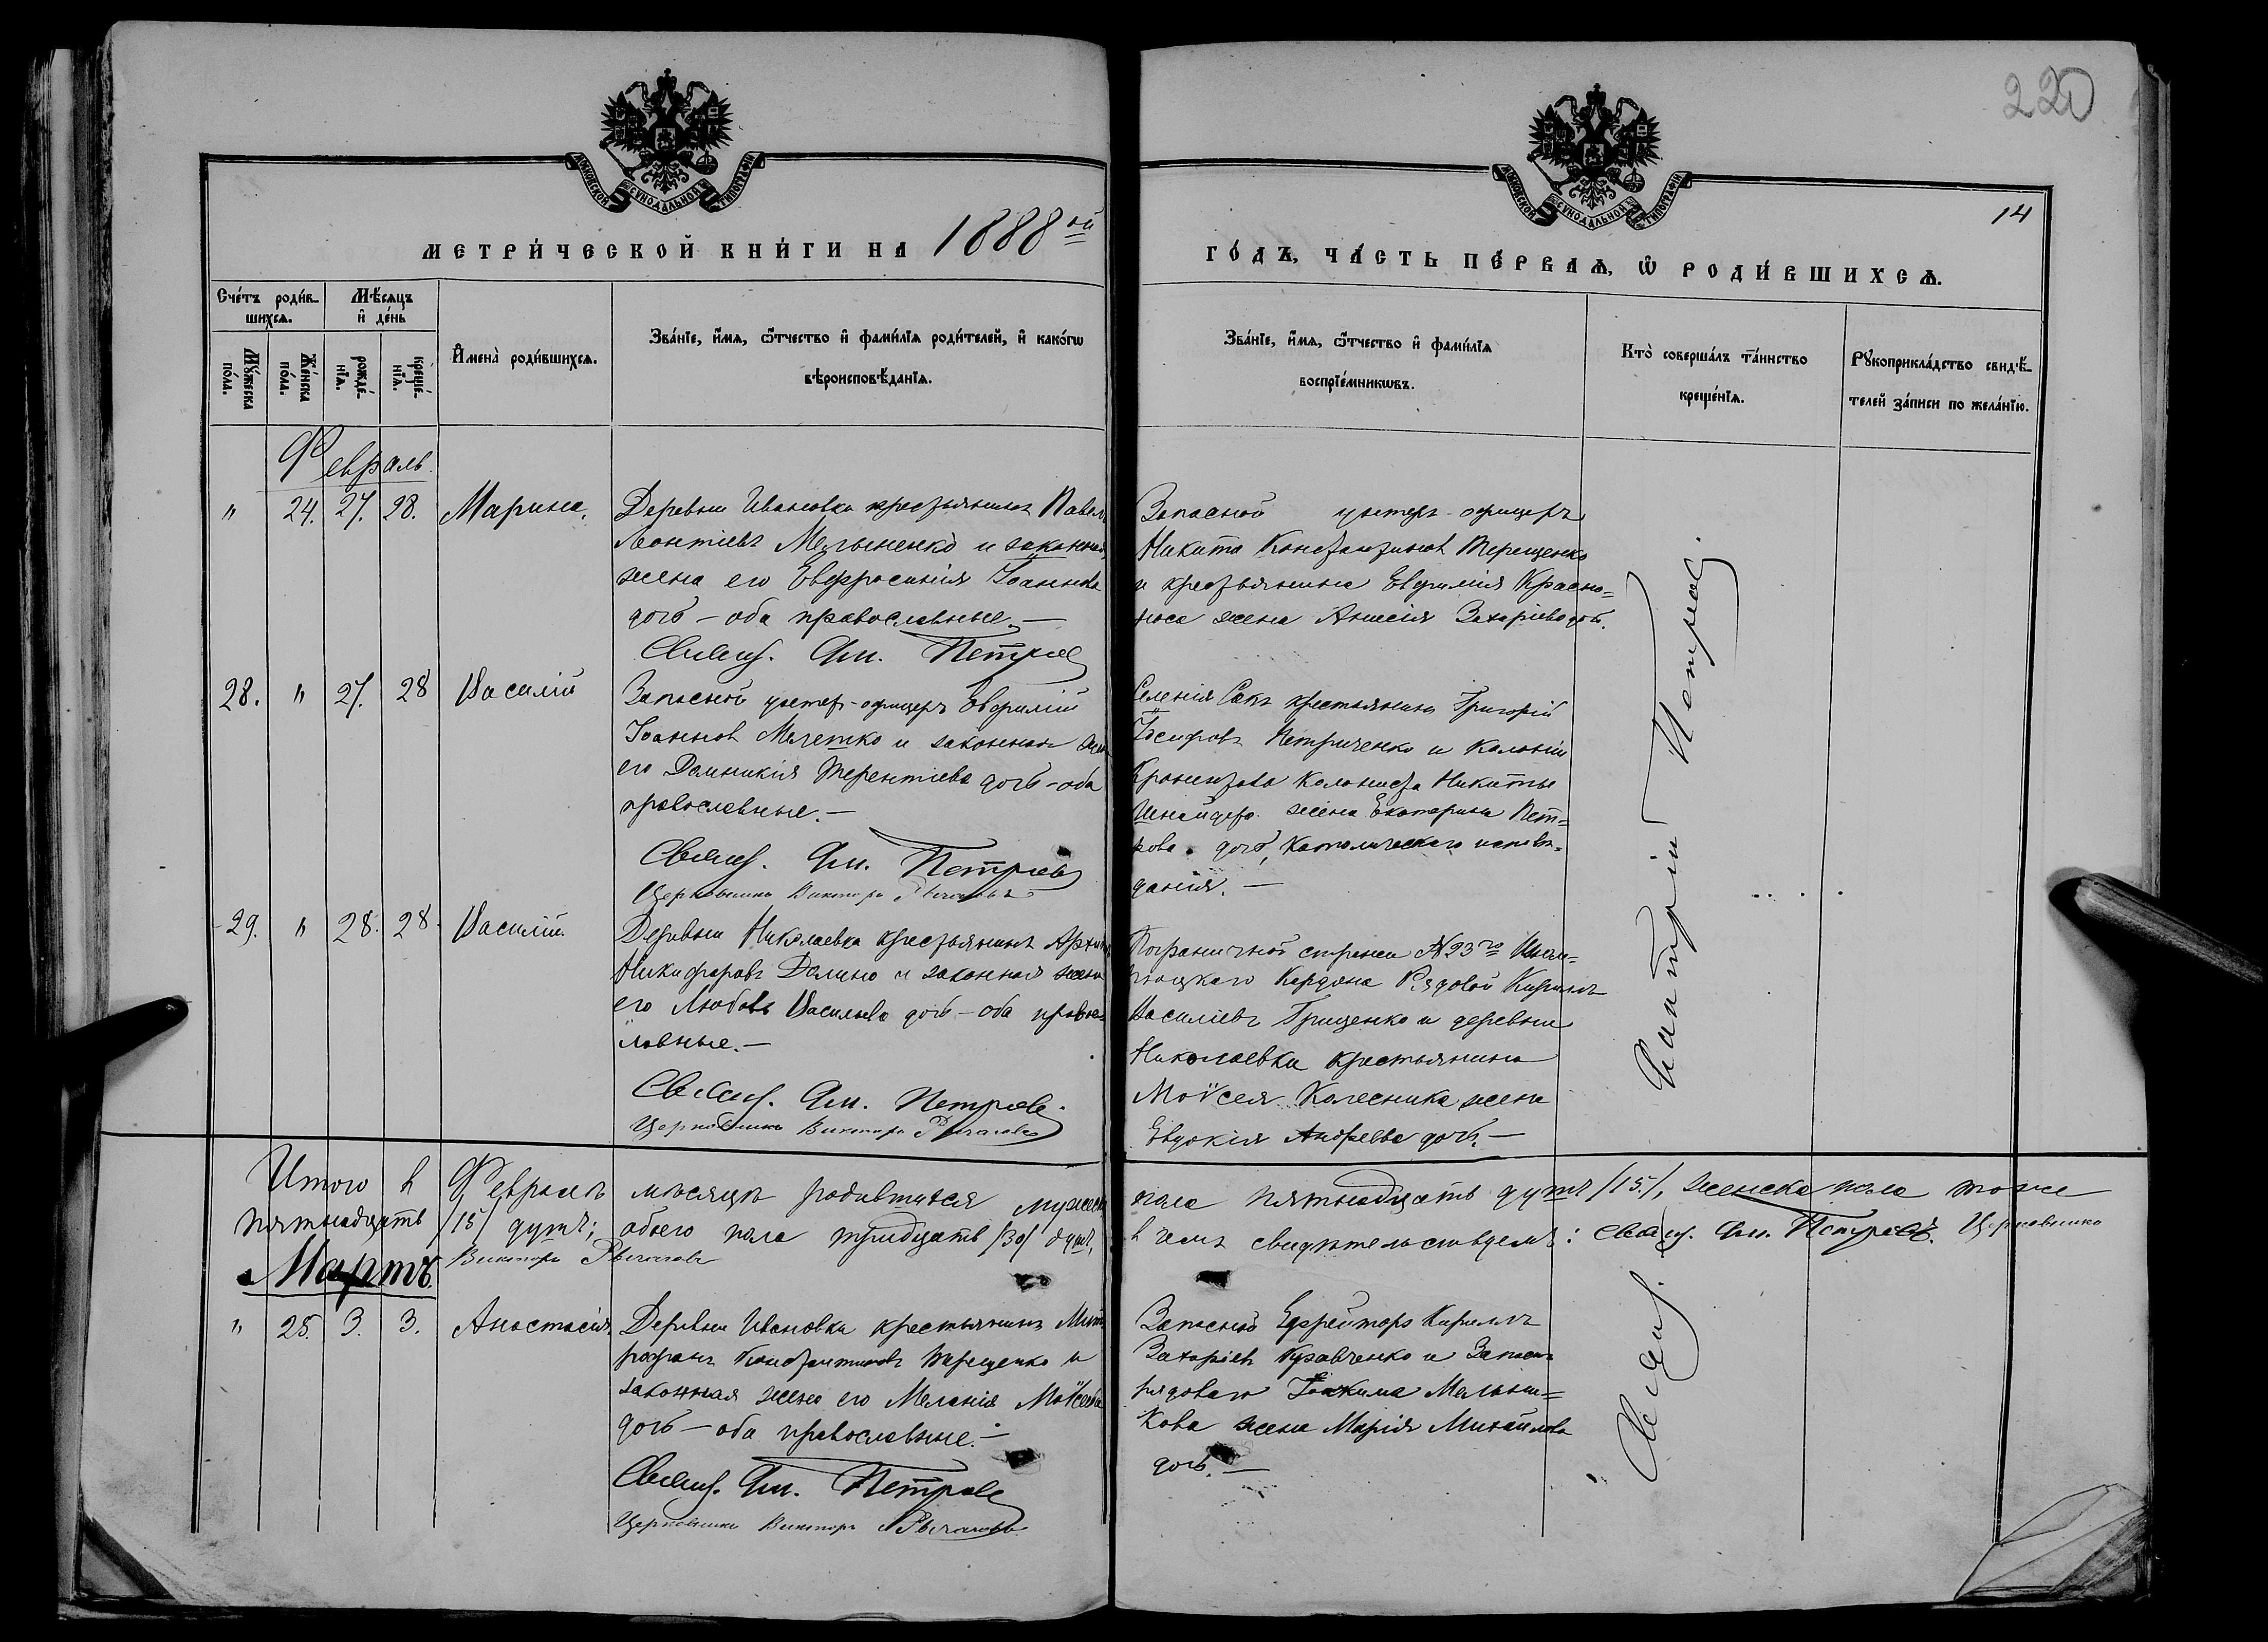 220
14
МОСКОВСКОЙ СѴНОДАЛЬНОЙ ТИПОГРАФІИ
МОСКОВСКОЙ СѴНОДАЛЬНОЙ ТИПОГРАФІИ
МЕТРИ́ЧЕСКОЙ КНИ́ГИ НА 1888ой
ГО́ДЪ, ЧА́СТЬ ПЕ́РВАѦ, Ѡ РОДИ́ВШИХСѦ.
Сче́тъ роди́в-
шихсѧ.
Мѣ́сѧцъ
и҆ де́нь
Мꙋ́жеска
по́ла.
Же́нска
по́ла.
рожде́-
нїѧ.
креще́-
нїѧ.
И҆мена̀ роди́вшихсѧ.
Зва́нїе, и҆́мѧ, ѻ҆́тчество и҆ фами́лїѧ роди́телей, и҆ како́гѡ
вѣроисповѣ́данїѧ.
Зва́нїе, и҆́мѧ, ѻ҆́тчество и҆ фами́лїѧ
воспрїе́мникѡвъ.
Кто̀ соверша́лъ та́инство
креще́нїѧ.
Рꙋкоприкла́дство свидѣ́-
телей за́писи по жела́нїю.
Февраль.
" 24. 27. 28. Марина.
Деревни Ивановки крестьянинъ Павелъ
Леонтіевъ Мельниченко и законная
жена его Евфросинія Іоаннова
дочь – оба православные. –
Свящ. Дм. Петровъ
Запасной унтеръ-офицеръ
Никита Константиновъ Терещенко
и крестьянина Евфимія Красно=
носа жена Анисія Захаріева доч.
28. " 27. 28 Василій
Запасной унтер-офицеръ Евфимій
Іоаннов и законная жена
его Домникія Терентіева дочь – оба
православные. –
Свящ. Дм. Петровъ
Церковникъ Викторъ Рычаговъ
Селенія Сакъ крестьянинъ Григорій
Іосифовъ Петриченко и колоніи
колониста Никиты
Шнайдера жена Екатерина Пет=
рова дочь, Католическаго испове=
данія. –
29. " 28. 28. Василій.
Деревни Николаевка крестьянинъ
Никифоровъ и законная жена
его Любовь Васильева дочь – оба право=
славные. –
Свящ. Дм. Петровъ.
Церковникъ Викторъ Рычаговъ
Пограничной стражи № 23го
Кордона Рядовой Кириллъ
Василіевъ Гриценко и деревни
Николаевки крестьянина
Моѵсея Колесника жена
Евдокія Андреева дочь. –
Дмитрій Петров.
Итого в Февралѣ мѣсяцѣ родившихся мужеска пола пятнадцать душъ /15/, женска пола тоже
пятнадцать /15/ душъ; обоего пола тридцать /30/ душъ, в чемъ свидѣтельствуемъ: свящ. Дм. Петровъ. Церковникъ
Викторъ Рычаговъ
Мартъ.
" 25. 3. 3. Анастасія.
Деревни Ивановки крестьянинъ Мит
рофанъ Константиновъ Терещенко и
законная жена его Меланія Моѵсеева
дочь – оба православные. –
Свящ. Дм. Петровъ
Церковникъ Викторъ Рычаговъ
Запасной Ефрейторъ Кириллъ
Захаріевъ Кравченко и Запасн.
рядоваго Іоакима Мельни=
кова жена Марія Михайлова
дочь. –
Свящ.